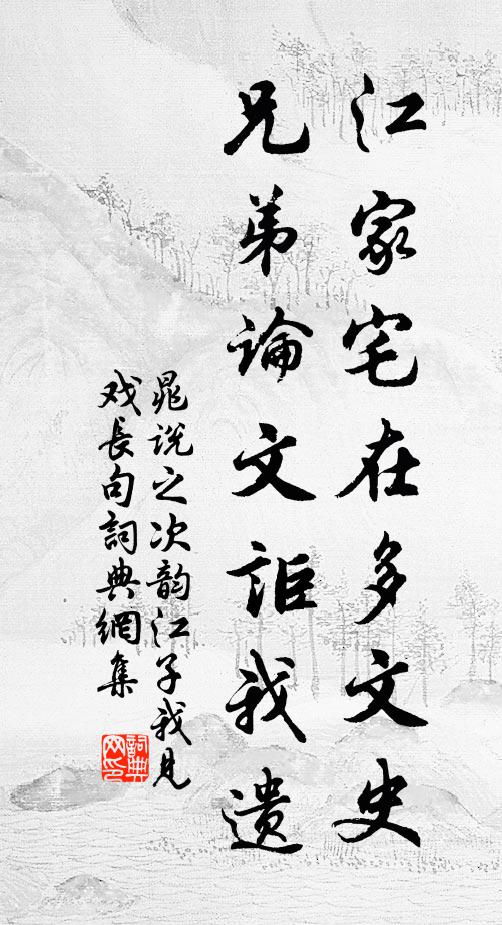 江家宅在多文史
兄弟論文詎我遺
晁说之次韵江子我見
戏長句詞典網集
詞典
网印